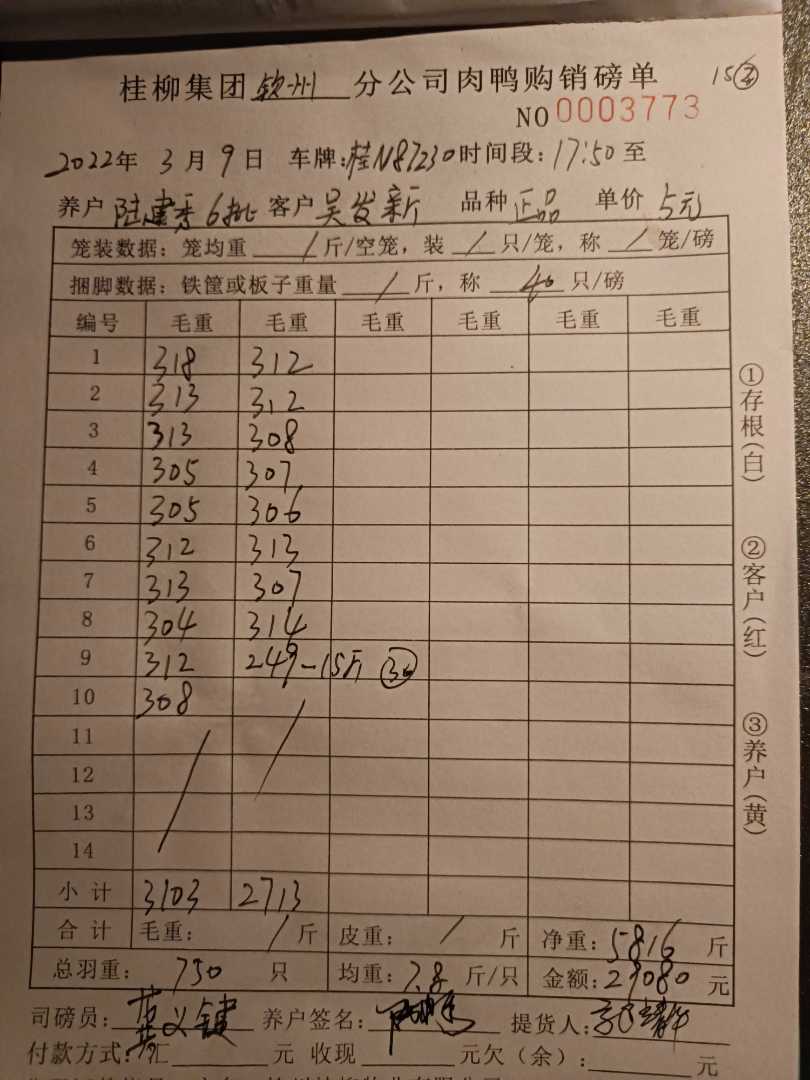 桂柳集团钦州分公司肉鸭购销磅单 15②
NO 0003773
2022年 3月 9日 车牌:桂N87230 时间段:17:50至
养户 陆建秀 6批 客户 吴发新 品种 正品 单价 5元
笼装数据:笼均重 / 斤/空笼,装 / 只/笼,称 / 笼/磅
捆脚数据:铁筐或板子重量 / 斤,称 40 只/磅
编号 毛重 毛重 毛重 毛重 毛重 毛重
1 318 312
2 313 312
3 313 308
4 305 307
5 305 306
6 312 313
7 313 307
8 304 314
9 312 249-15斤 ㉚
10 308
11
12
13
14
小计 3103 2713
合计 毛重: / 斤 皮重: / 斤 净重:5816 斤
总羽重: 750 只 均重:7.8 斤/只 金额:29080 元
司磅员: 养户签名: 提货人:
付款方式:汇 元 收现 元欠(余): 元
①存根(白)
②客户(红)
③养户(黄)